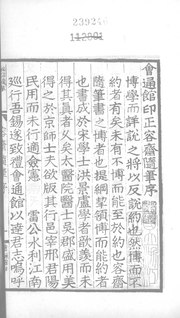 23924
112801
會通館印正容齋隨筆序
博學而詳說之將以反說約也然博而不
約者有矣未有不博而能至於約也容齋
隨筆書之博者也提綱挈領博而能約者
也書成於宋學士洪景盧學者歆羨而未
得其真者久矣太醫院醫士吳郡盛用美
得之於京師士夫欲版其行邑宰邢君陽
民用而未行適僉憲 雷公水利江南
巡行吾錫遂致禮會通館以達君志嗚呼